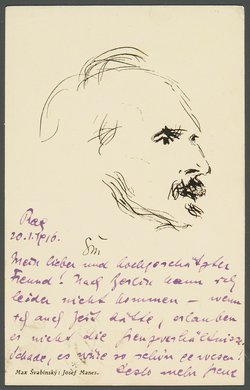 Prag
20.1.1916.
Mein lieber und hochgeschätzter
Freund! Nach Berlin kann ich
leider nicht kommen – wenn
ich auch Zeit hätte, erlauben
es nicht die Grenzverhältnisse.
Schade, es wäre so schön gewesen!
Desto mehr freue
Max Švabinský: Josef Manes.